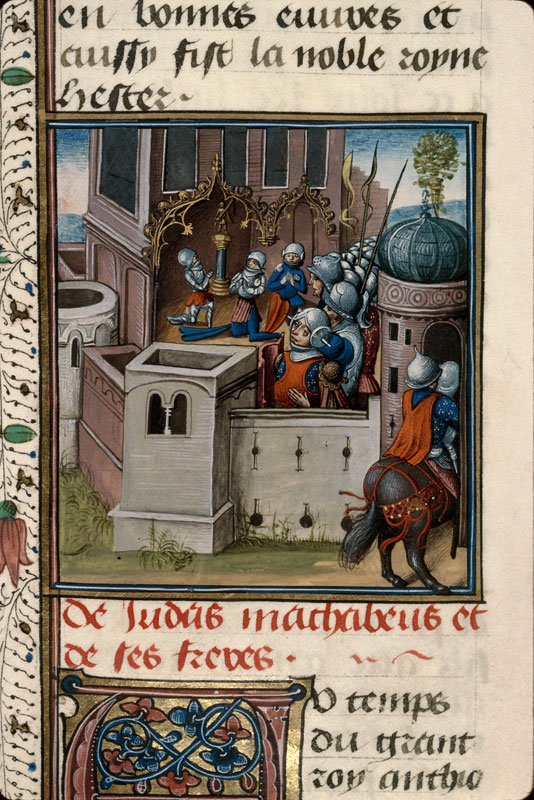 en bonnes euures et
aussy fist la noble royne
hester.
De Judas machabeus et
de ses freres.
AU temps
du grant
roy anthio